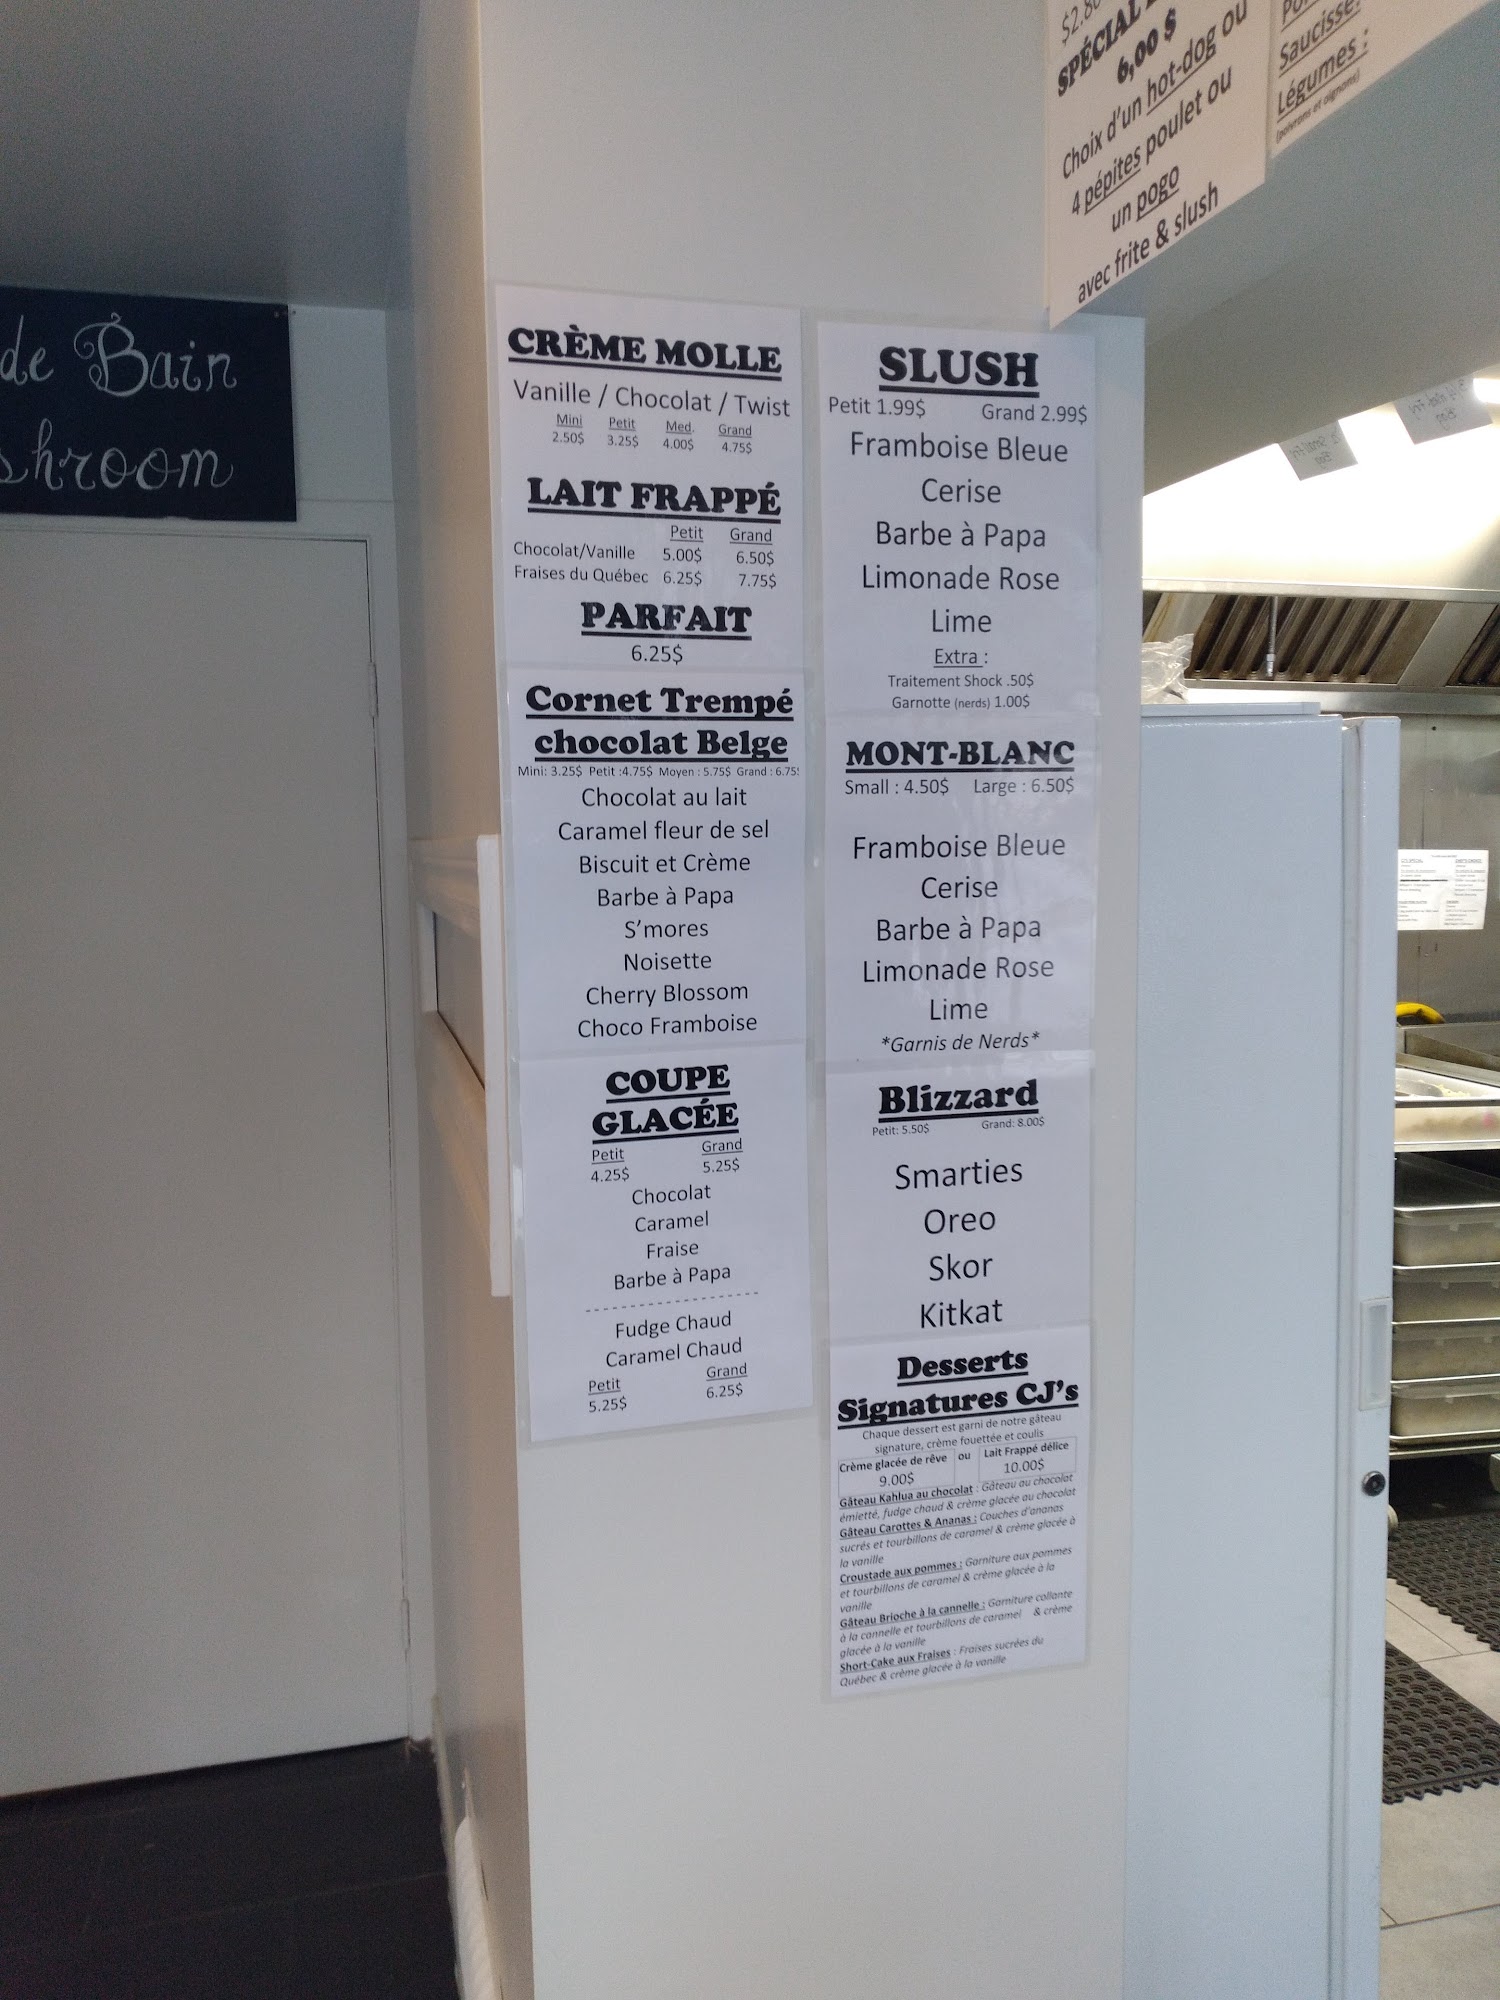 de Bain
shroom
$2.80
SPÉCIAL
6,00 $
Choix d'un hot-dog ou
4 pépites poulet ou
un pogo
avec frite & slush
Saucisse
Légumes :
(poivrons et oignons)
CRÈME MOLLE
Vanille / Chocolat / Twist
Mini Petit Med. Grand
2.50$ 3.25$ 4.00$ 4.75$
LAIT FRAPPÉ
Petit Grand
Chocolat/Vanille 5.00$ 6.50$
Fraises du Québec 6.25$ 7.75$
PARFAIT
6.25$
Cornet Trempé
chocolat Belge
Mini: 3.25$ Petit :4.75$ Moyen : 5.75$ Grand : 6.75$
Chocolat au lait
Caramel fleur de sel
Biscuit et Crème
Barbe à Papa
S'mores
Noisette
Cherry Blossom
Choco Framboise
COUPE
GLACÉE
Petit Grand
4.25$ 5.25$
Chocolat
Caramel
Fraise
Barbe à Papa
--------------------
Fudge Chaud
Caramel Chaud
Petit Grand
5.25$ 6.25$
SLUSH
Petit 1.99$ Grand 2.99$
Framboise Bleue
Cerise
Barbe à Papa
Limonade Rose
Lime
Extra :
Traitement Shock .50$
Garnotte (nerds) 1.00$
MONT-BLANC
Small : 4.50$ Large : 6.50$
Framboise Bleue
Cerise
Barbe à Papa
Limonade Rose
Lime
*Garnis de Nerds*
Blizzard
Petit: 5.50$ Grand: 8.00$
Smarties
Oreo
Skor
Kitkat
Desserts
Signatures CJ's
Chaque dessert est garni de notre gâteau
signature, crème fouettée et coulis
Crème glacée de rêve ou Lait Frappé délice
9.00$ 10.00$
Gâteau Kahlua au chocolat : Gâteau au chocolat
émietté, fudge chaud & crème glacée au chocolat
Gâteau Carottes & Ananas : Couches d'ananas
sucrés et tourbillons de caramel & crème glacée à
la vanille
Croustade aux pommes : Garniture aux pommes
et tourbillons de caramel & crème glacée à la
vanille
Gâteau Brioche à la cannelle : Garniture collante
à la cannelle et tourbillons de caramel & crème
glacée à la vanille
Short-Cake aux Fraises : Fraises sucrées du
Québec & crème glacée à la vanille